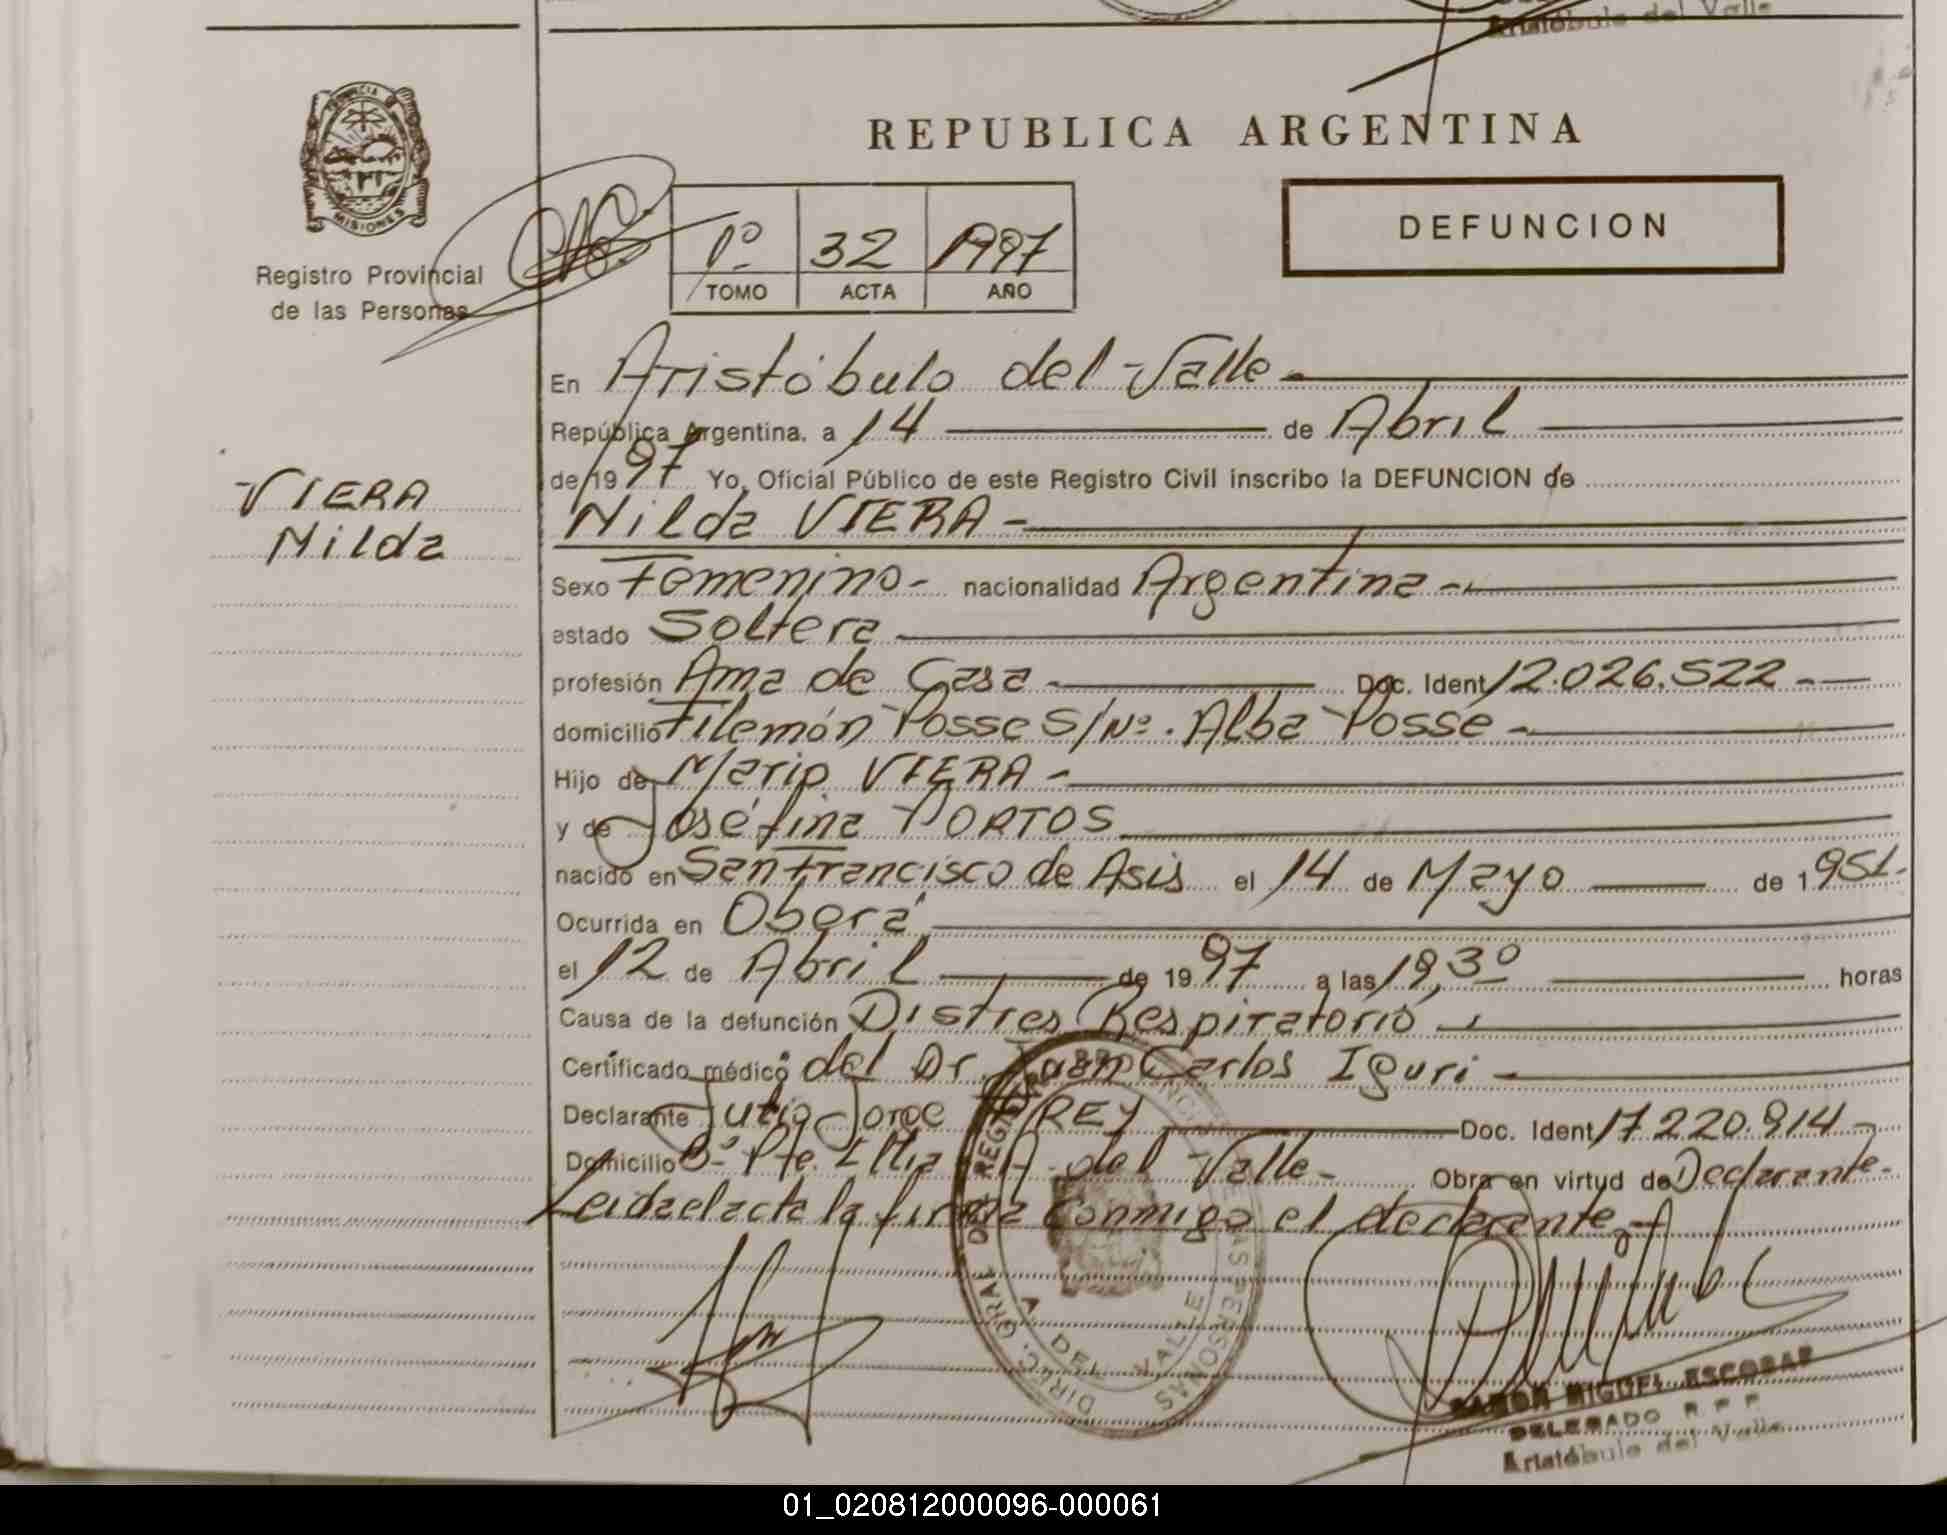 Aristóbulo del Valle
REPUBLICA ARGENTINA
PROVINCIA
MISIONES
Registro Provincial
de las Personas
1º 32 1997
TOMO ACTA AÑO
DEFUNCION
En Aristóbulo del Valle-
República Argentina, a 14 de Abril
de 1997 Yo, Oficial Público de este Registro Civil inscribo la DEFUNCION de
VIERA
Nilda
Nilda VIERA-
Sexo Femenino- nacionalidad Argentina-
estado Soltera
profesión Ama de Casa- Doc. Ident 12.026.522-
domicilio Filemón Posse S/Nº. Alba Posse-
Hijo de Mario VIERA-
y de Joséfina PORTOS
nacido en San Francisco de Asis el 14 de Mayo de 1951-
Ocurrida en Oberá
el 12 de Abril de 1997 a las 19,30 horas
Causa de la defunción Distres Respiratorio
Certificado médico del Dr. Juan Carlos Iguri-
Declarante Julio Jorge REY Doc. Ident 17220.914-
Domicilio Bº Pte. Illia A. del Valle- Obra en virtud de Declarante-
Leida el acta la firma conmigo el declarante-
DIREC. GRAL DEL REGISTRO PROVINCIAL DE LAS PERSONAS
A DEL VALLE
RAMON MIGUEL ESCOBAR
DELEGADO R P P
Aristóbulo del Valle
01_020812000096-000061